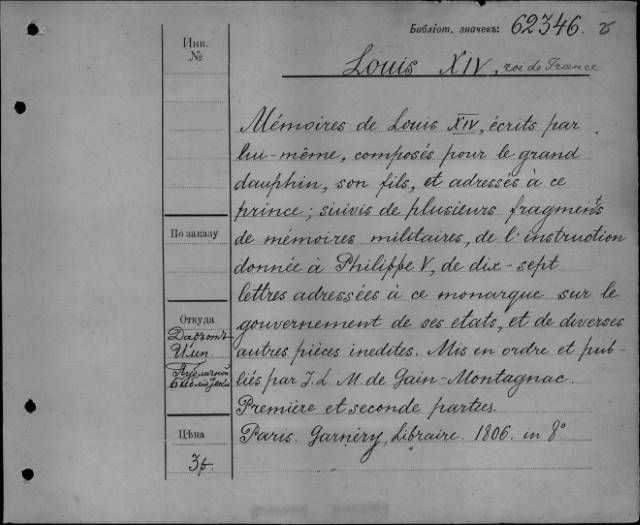 Библіот. значекъ: 62346.
Инв.
№
Louis XIV, roi de France
Mémoires de Louis XIV, écrits par
lui-même, composés pour le grand
dauphin, son fils, et adressés à ce
prince; suivis de plusieurs fragments
По заказу
de mémoires militaires, de l'instruction
donnée à Philippe V, de dix-sept
lettres adressées à ce monarque sur le
Откуда
gouvernement de ses etats, et de diverses
Имп.
Публичной
Библіотеки
autres pièces inedites. Mis en ordre et pub-
liés par J. L. M. de Gain-Montagnac.
Première et seconde parties.
Цѣна
3р.
Paris. Garnéry, Libraire. 1806. in 8°